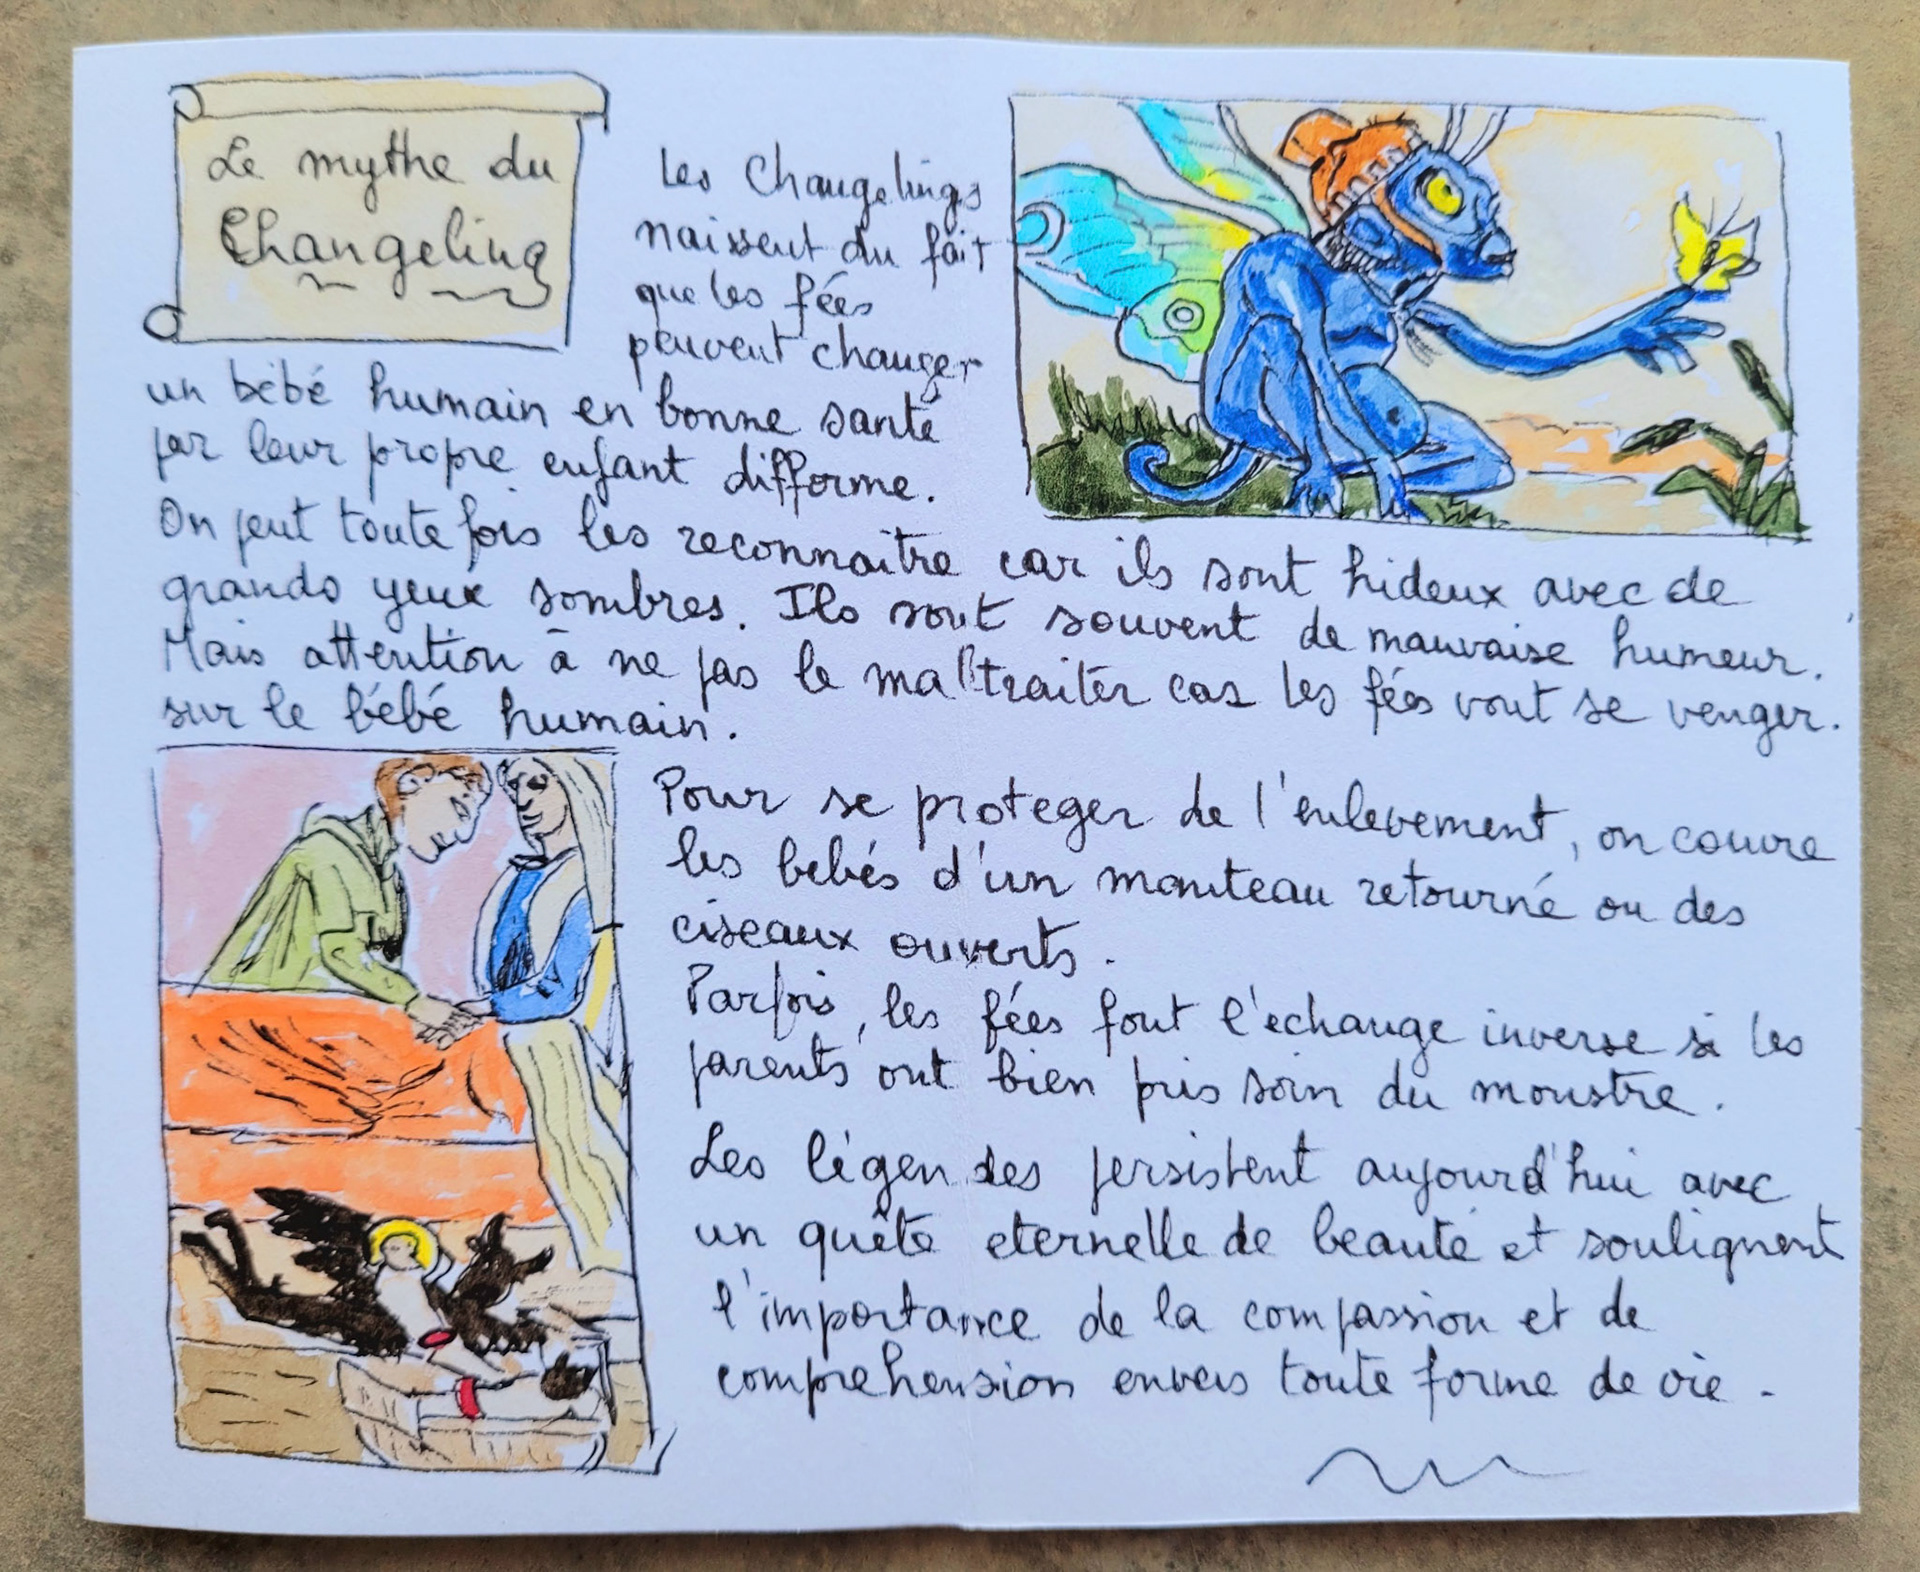 Le mythe du
Changeling
Les Changelings
naissent du fait
que les fées
peuvent changer
un bébé humain en bonne santé
par leur propre enfant difforme.
On peut toutefois les reconnaitre car ils sont hideux avec de
grands yeux sombres. Ils sont souvent de mauvaise humeur.
Mais attention à ne pas le maltraiter car les fées vont se venger.
sur le bébé humain.
Pour se proteger de l'enlevement, on couvre
les bebés d'un manteau retourné ou des
ciseaux ouverts.
Parfois, les fées font l'echange inverse si les
parents ont bien pris soin du monstre.
Les légendes persistent aujourd'hui avec
un quête eternelle de beauté et soulignent
l'importance de la compassion et de
comprehension envers toute forme de vie.